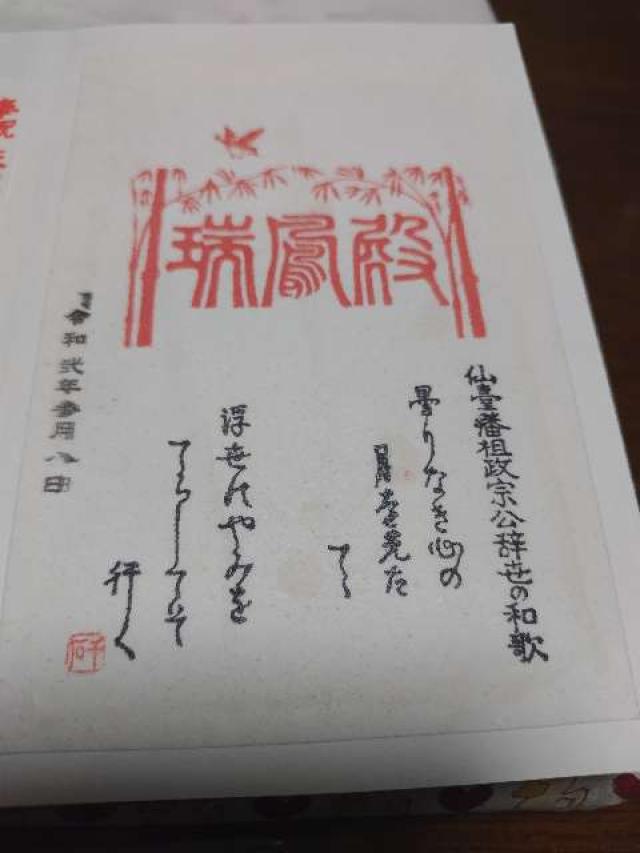 瑞鳳殿
仙臺藩祖政宗公辞世の和歌
曇りなき心の
月を先だ
てて
浮世のやみを
てらしてぞ
行く
令和弐年参月八日